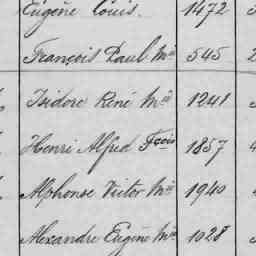 Eugène Louis. 1472
François Paul Mie 545
Isidore René Mie 1241
Henri Alfred Fçois 1857
Alphonse Victor Mie 1940
Alexandre Eugène Mie 1028